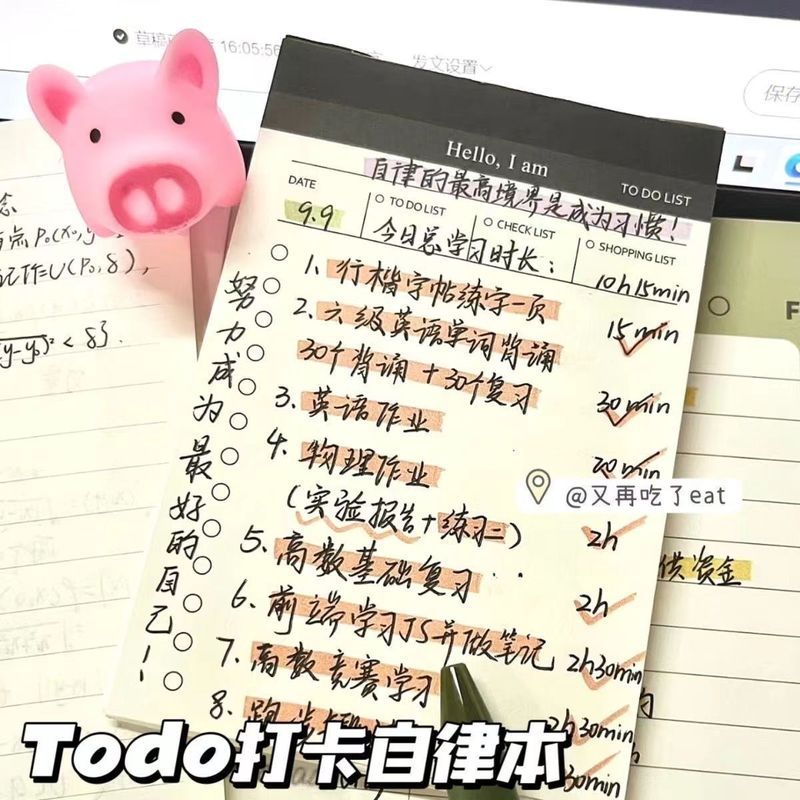 草稿 16:05:56 发文设置
保存
Hello, I am
TO DO LIST
自律的最高境界是成为习惯!
DATE
TO DO LIST
CHECK LIST
SHOPPING LIST
9.9
今日总学习时长: 10h15min
努力成为最好的自己!
1. 行楷字帖练字一页 15min
2. 六级英语单词背诵
30个背诵+30个复习 30min
3. 英语作业 20min
4. 物理作业
(实验报告+练习二) 2h
5. 高数基础复习 2h
6. 前端学习JS并做笔记 2h30min
7. 高数竞赛学习 2h30min
8. 跑步 30min
念
点P₀(x₀,y
记作U(P₀,δ),
y-y₀)² < δ}.
F
供资金
@又再吃了eat
Todo打卡自律本